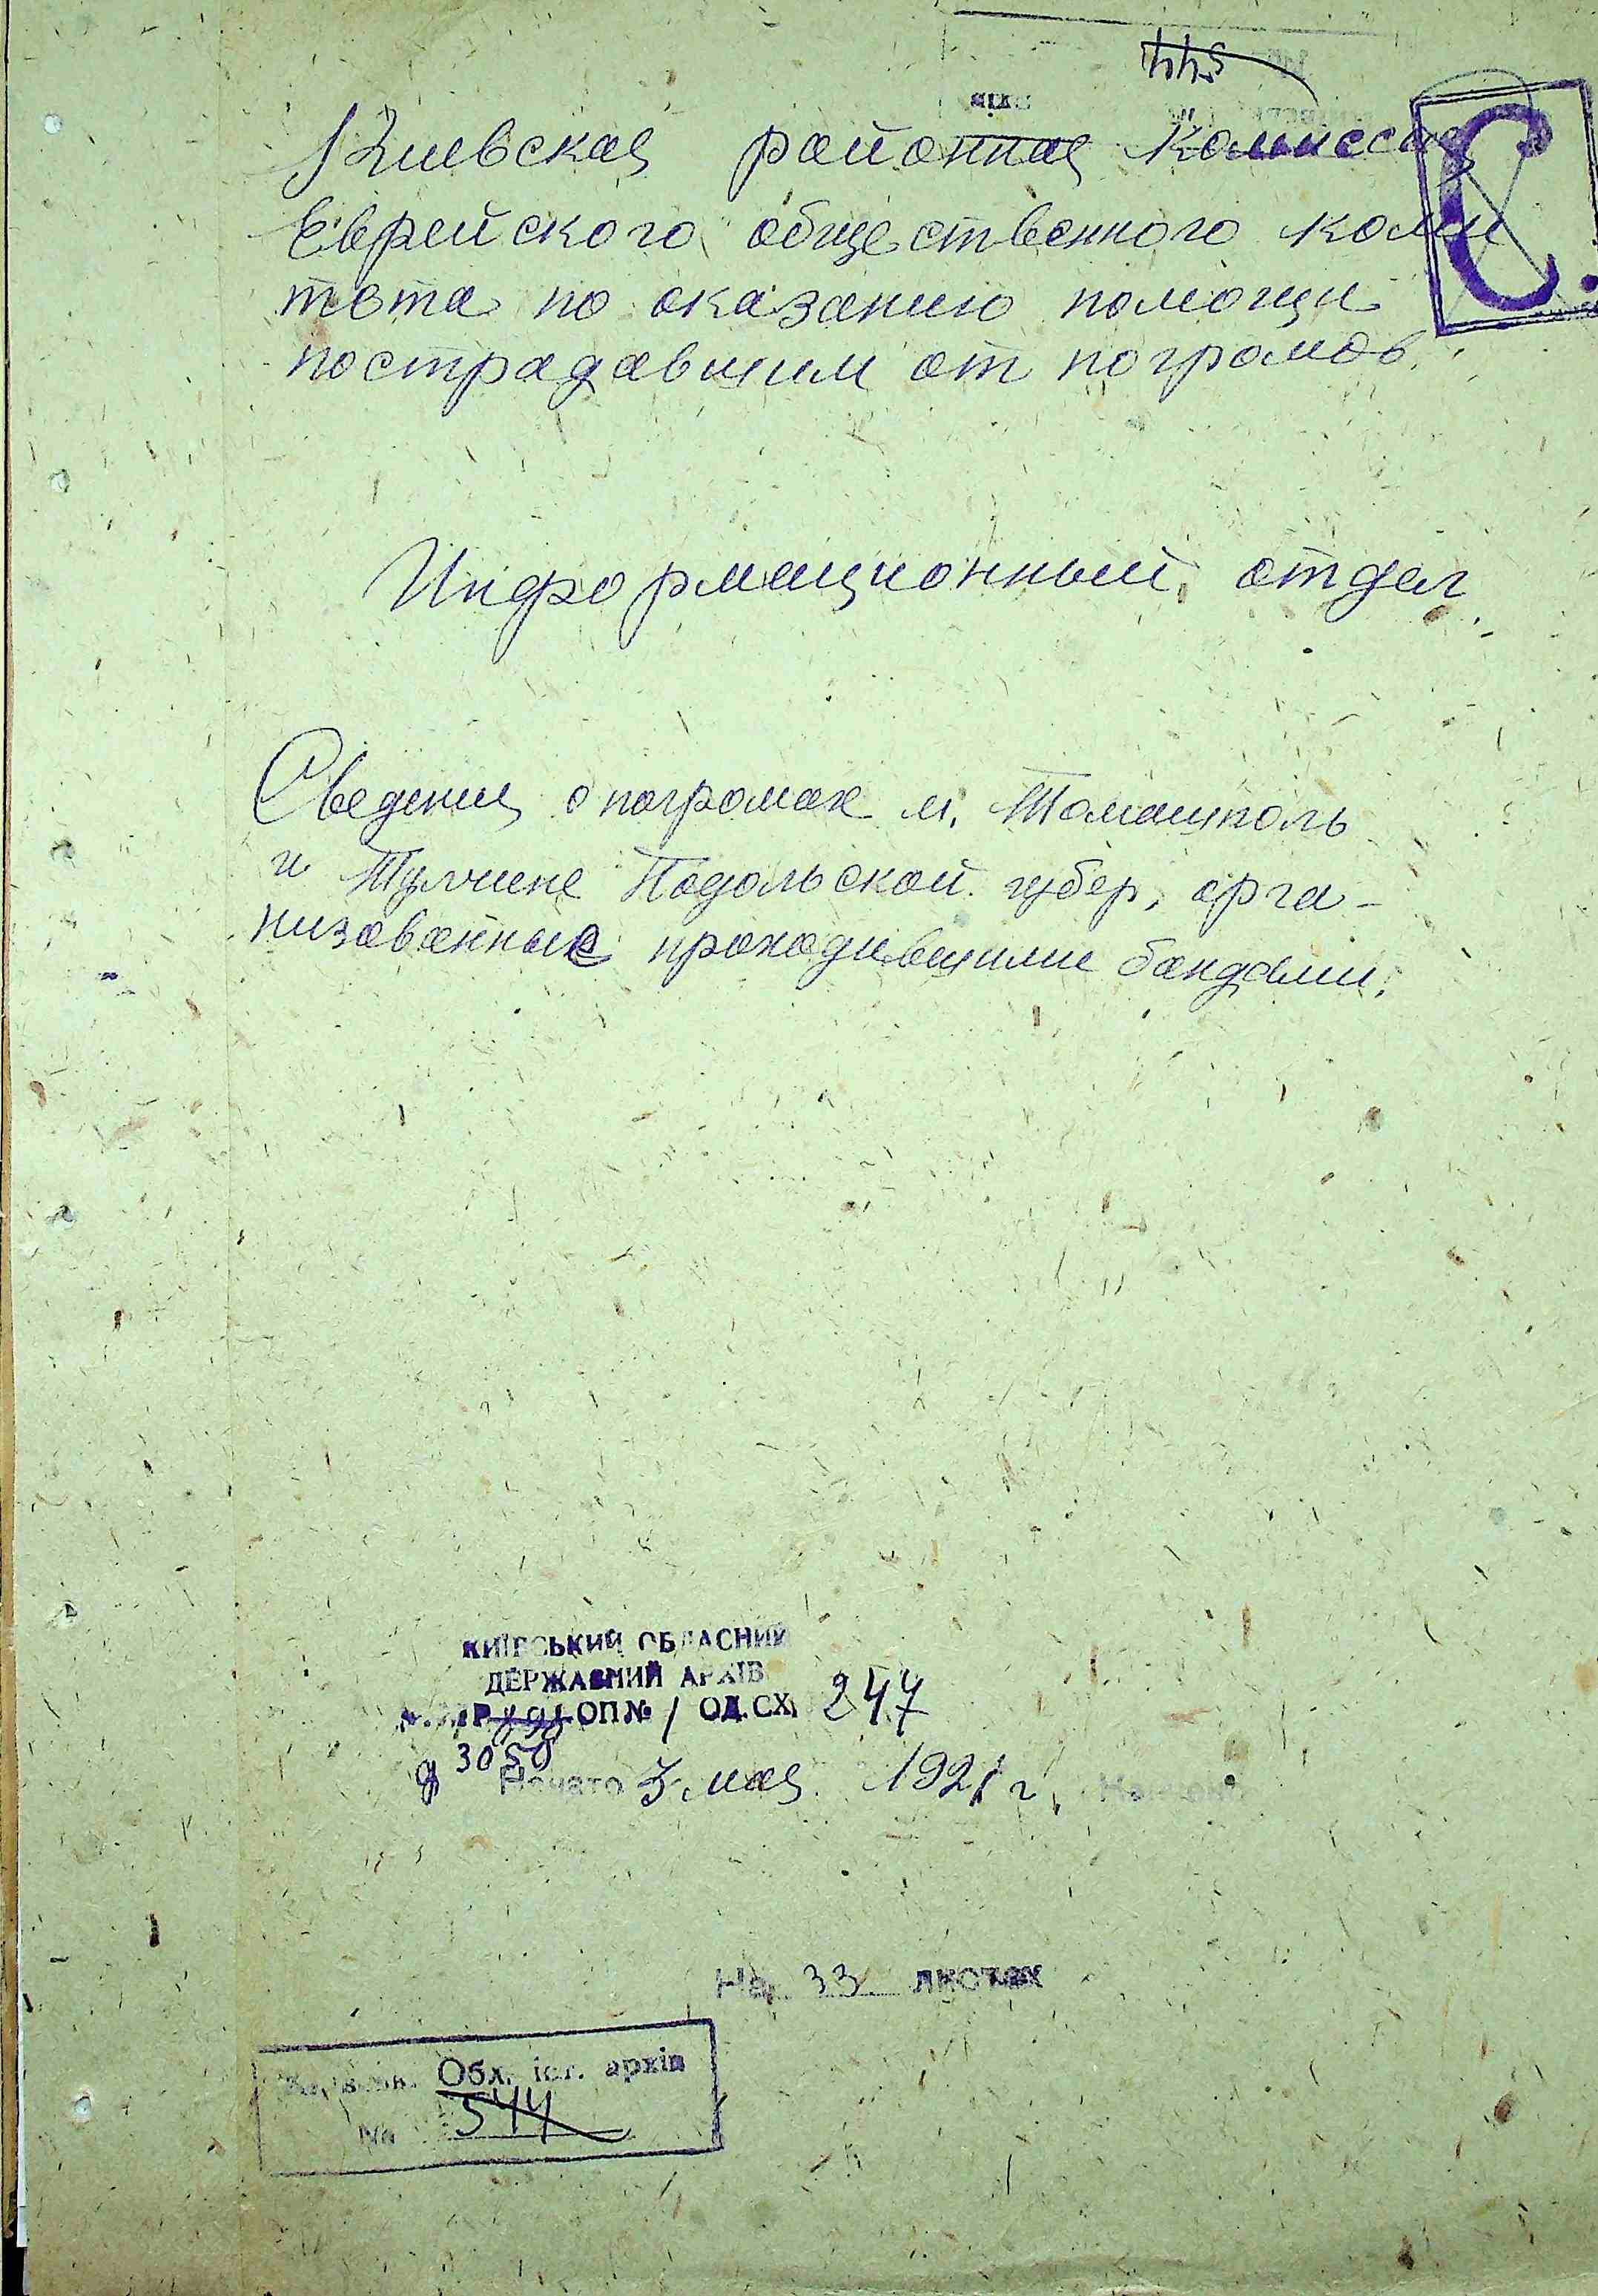 Киевская районная Комиссия
С.
Еврейского общественного коми
тета по оказанию помощи
пострадавшим от погромов.
Информационный отдел.
Сведения о погромах м. Томашполь
и Тульчине Подольской губер, орга-
низованные проходившими бандами.
КИЇВСЬКИЙ ОБЛАСНИЙ
ДЕРЖАВНИЙ АРХІВ
ОП № 1 ОД.СХ. 247
3050
Начато 3 мая 1921 г.
На 33 листах
Обл. іст. архів
№ 544